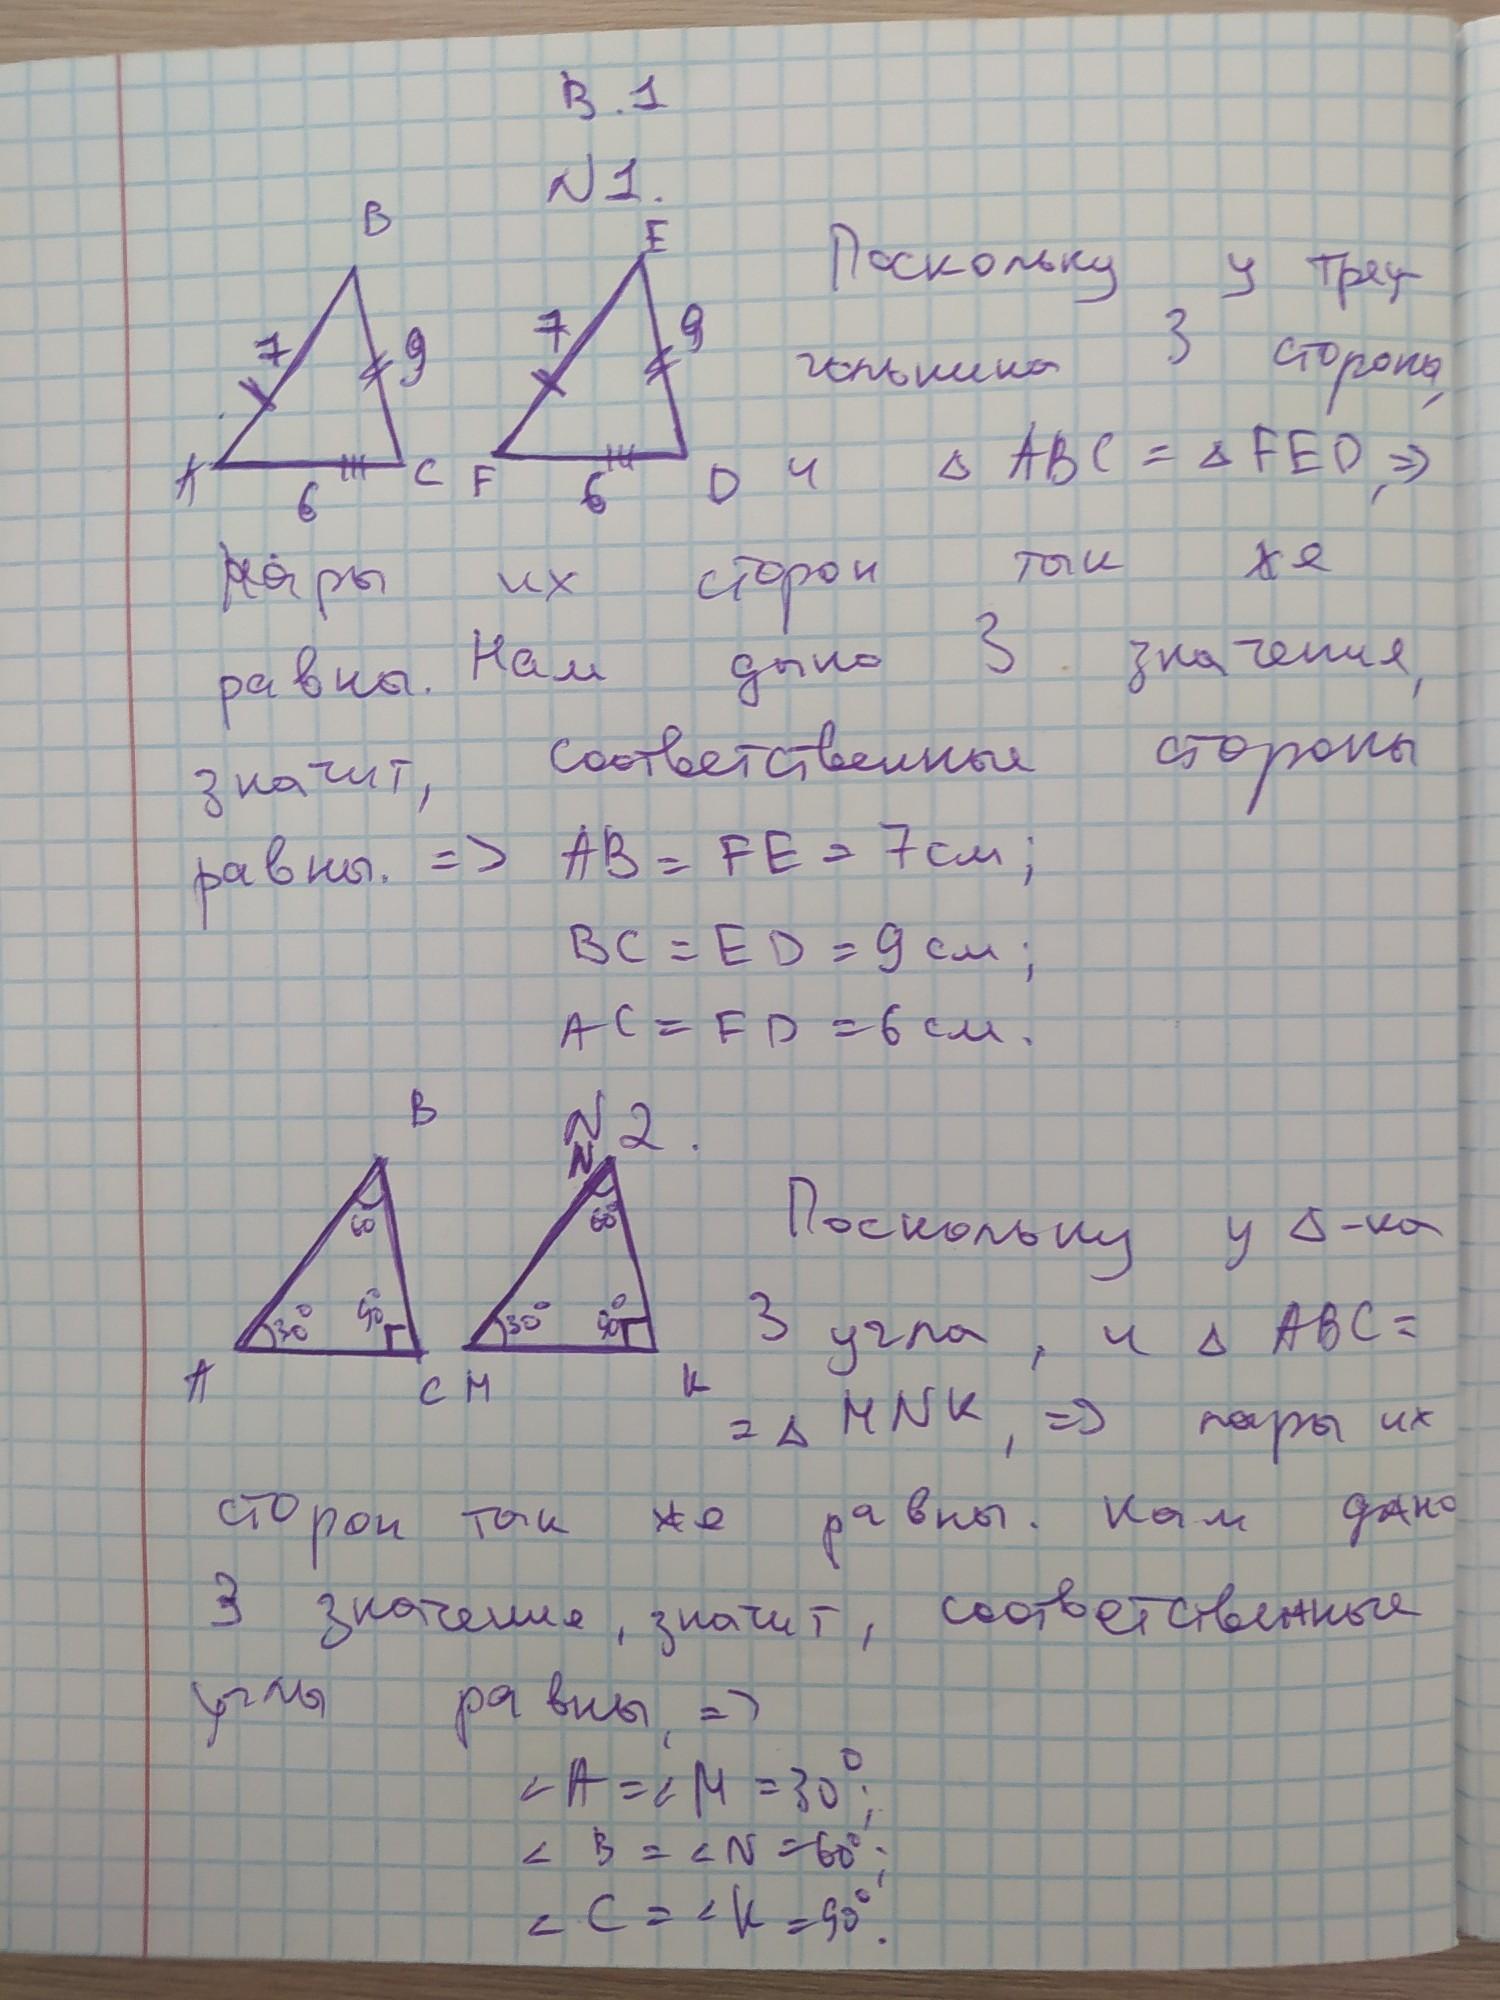 В.1
N1.
B
E
7
9
7
9
A
6
C
F
6
D
Поскольку у треу-
гольника 3 стороны,
и △ ABC = △ FED, =>
пары их сторон так же
равны. Нам дано 3 значения,
значит, соответственные стороны
равны. => AB = FE = 7см;
BC = ED = 9см;
AC = FD = 6см.
N2.
B
N
60°
60°
30°
90°
30°
90°
A
C
M
K
Поскольку у △-ка
3 угла, и △ ABC =
= △ MNK, => пары их
сторон так же равны. Нам дано
3 значения, значит, соответственные
углы равны, =>
∠A = ∠M = 30°;
∠B = ∠N = 60°;
∠C = ∠K = 90°.